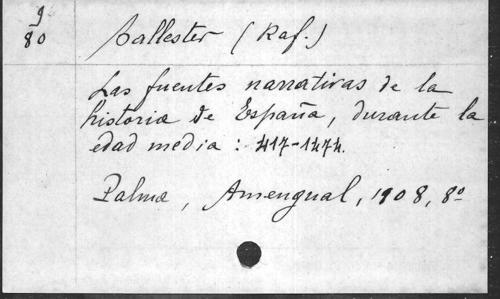 9
80
Ballester (Raf.)
Las fuentes narrativas de la
historia de España, durante la
edad media : 417-1474.
Palma, Amengual, 1908, 8º